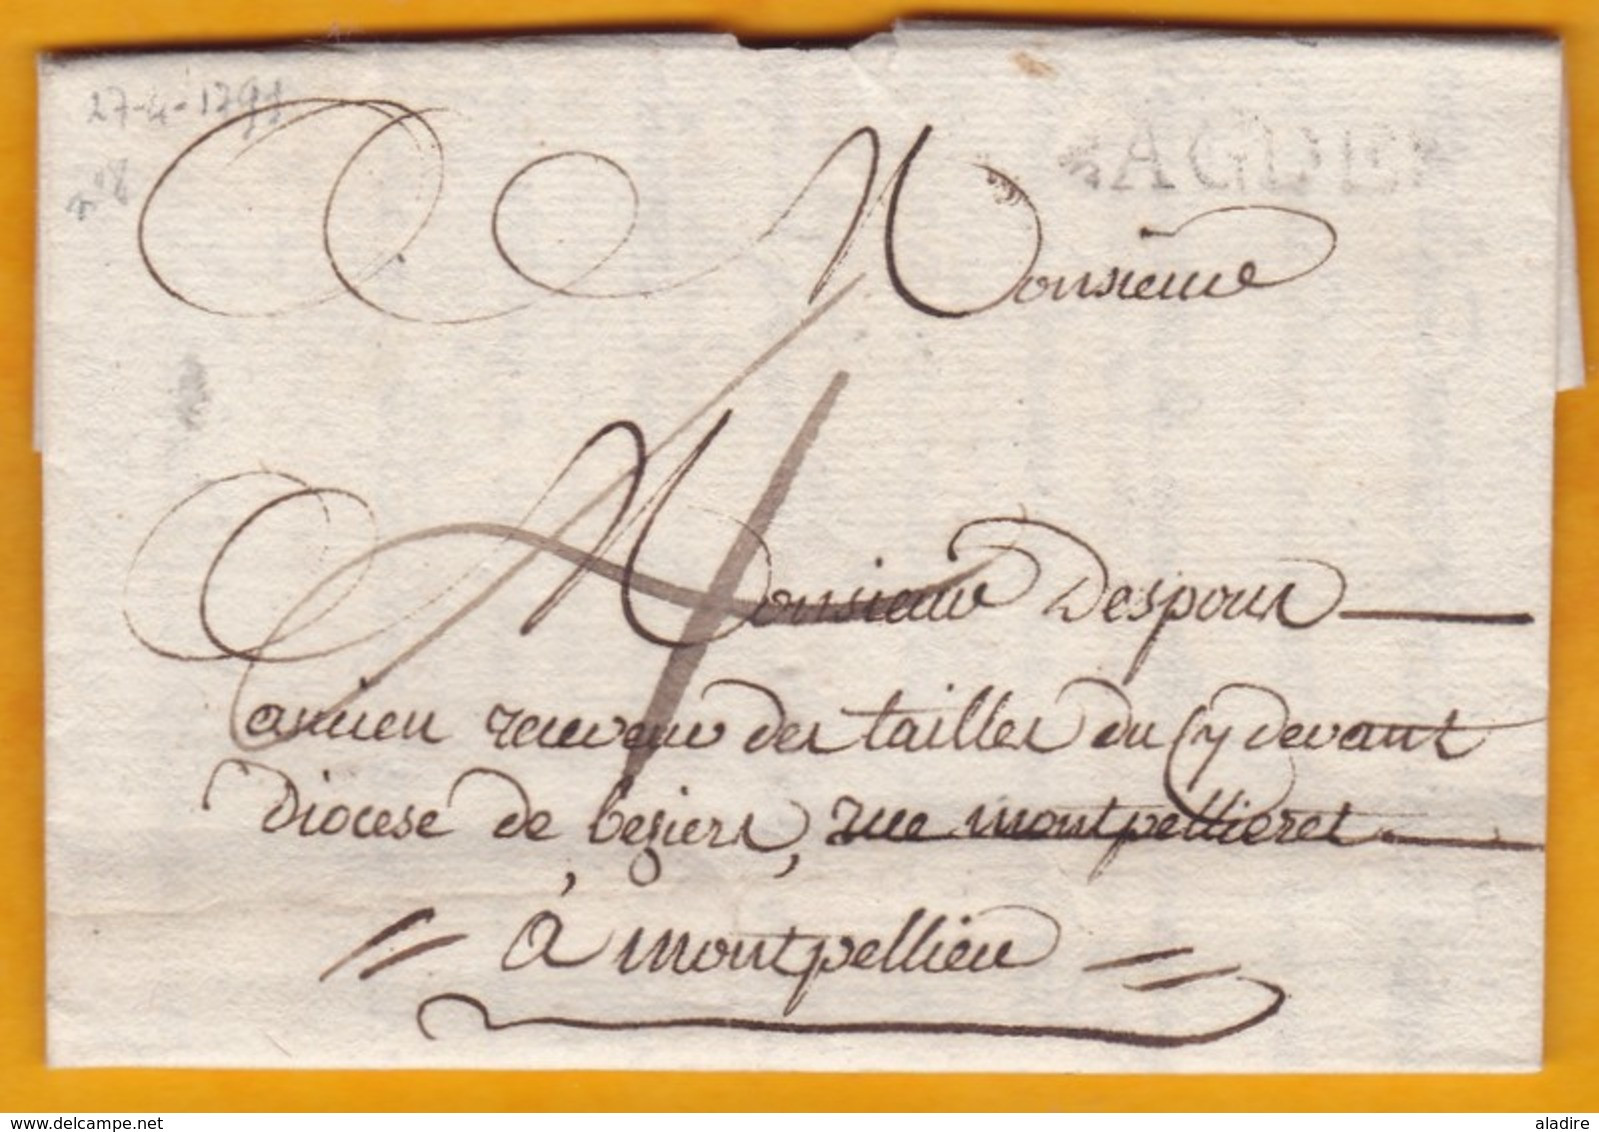 27-4-1791
AGDE
Monsieur
4
Monsieur Despous
ancien receveur des tailles du cy devant
diocese de beziers, rue montpellieret
à montpellier
aladire